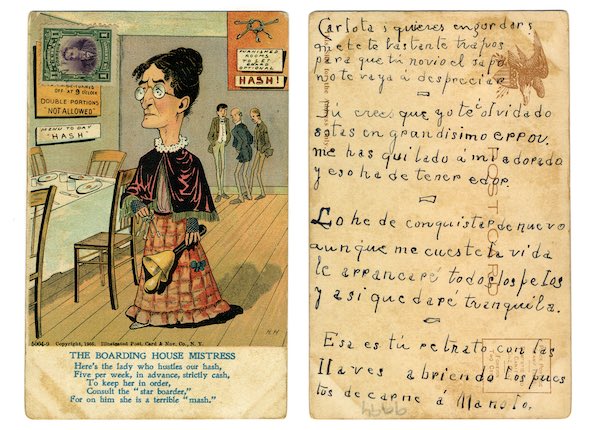 FURNISHED
ROOMS
TO LET
BOARD
OPTIONAL
HASH!
OFF AT 9 OCLOCK
DOUBLE PORTIONS
"NOT ALLOWED"
MENU TO DAY
"HASH"
5004-9 Copyright, 1905, Illustrated Post. Card & Nov. Co., N. Y.
THE BOARDING HOUSE MISTRESS
Here's the lady who hustles our hash,
Five per week, in advance, strictly cash,
To keep her in order,
Consult the "star boarder,"
For on him she is a terrible "mash."
Carlota si quieres engordar
metete bastante trapos
para que tu novio el sapo
no te vaya á despreciar
Tú crees que yo te olvidado
estas en grandisimo error.
me has quitado á mi adorado
y eso ha de tener edor.
Lo he de conquistar de nuevo
aunque me cueste la vida
le arrancaré todos los pelos
y asi quedaré tranquila.
Esa es tú retrato con las
llaves abriendo los pues
tos de carne á Manolo.
POST CARD